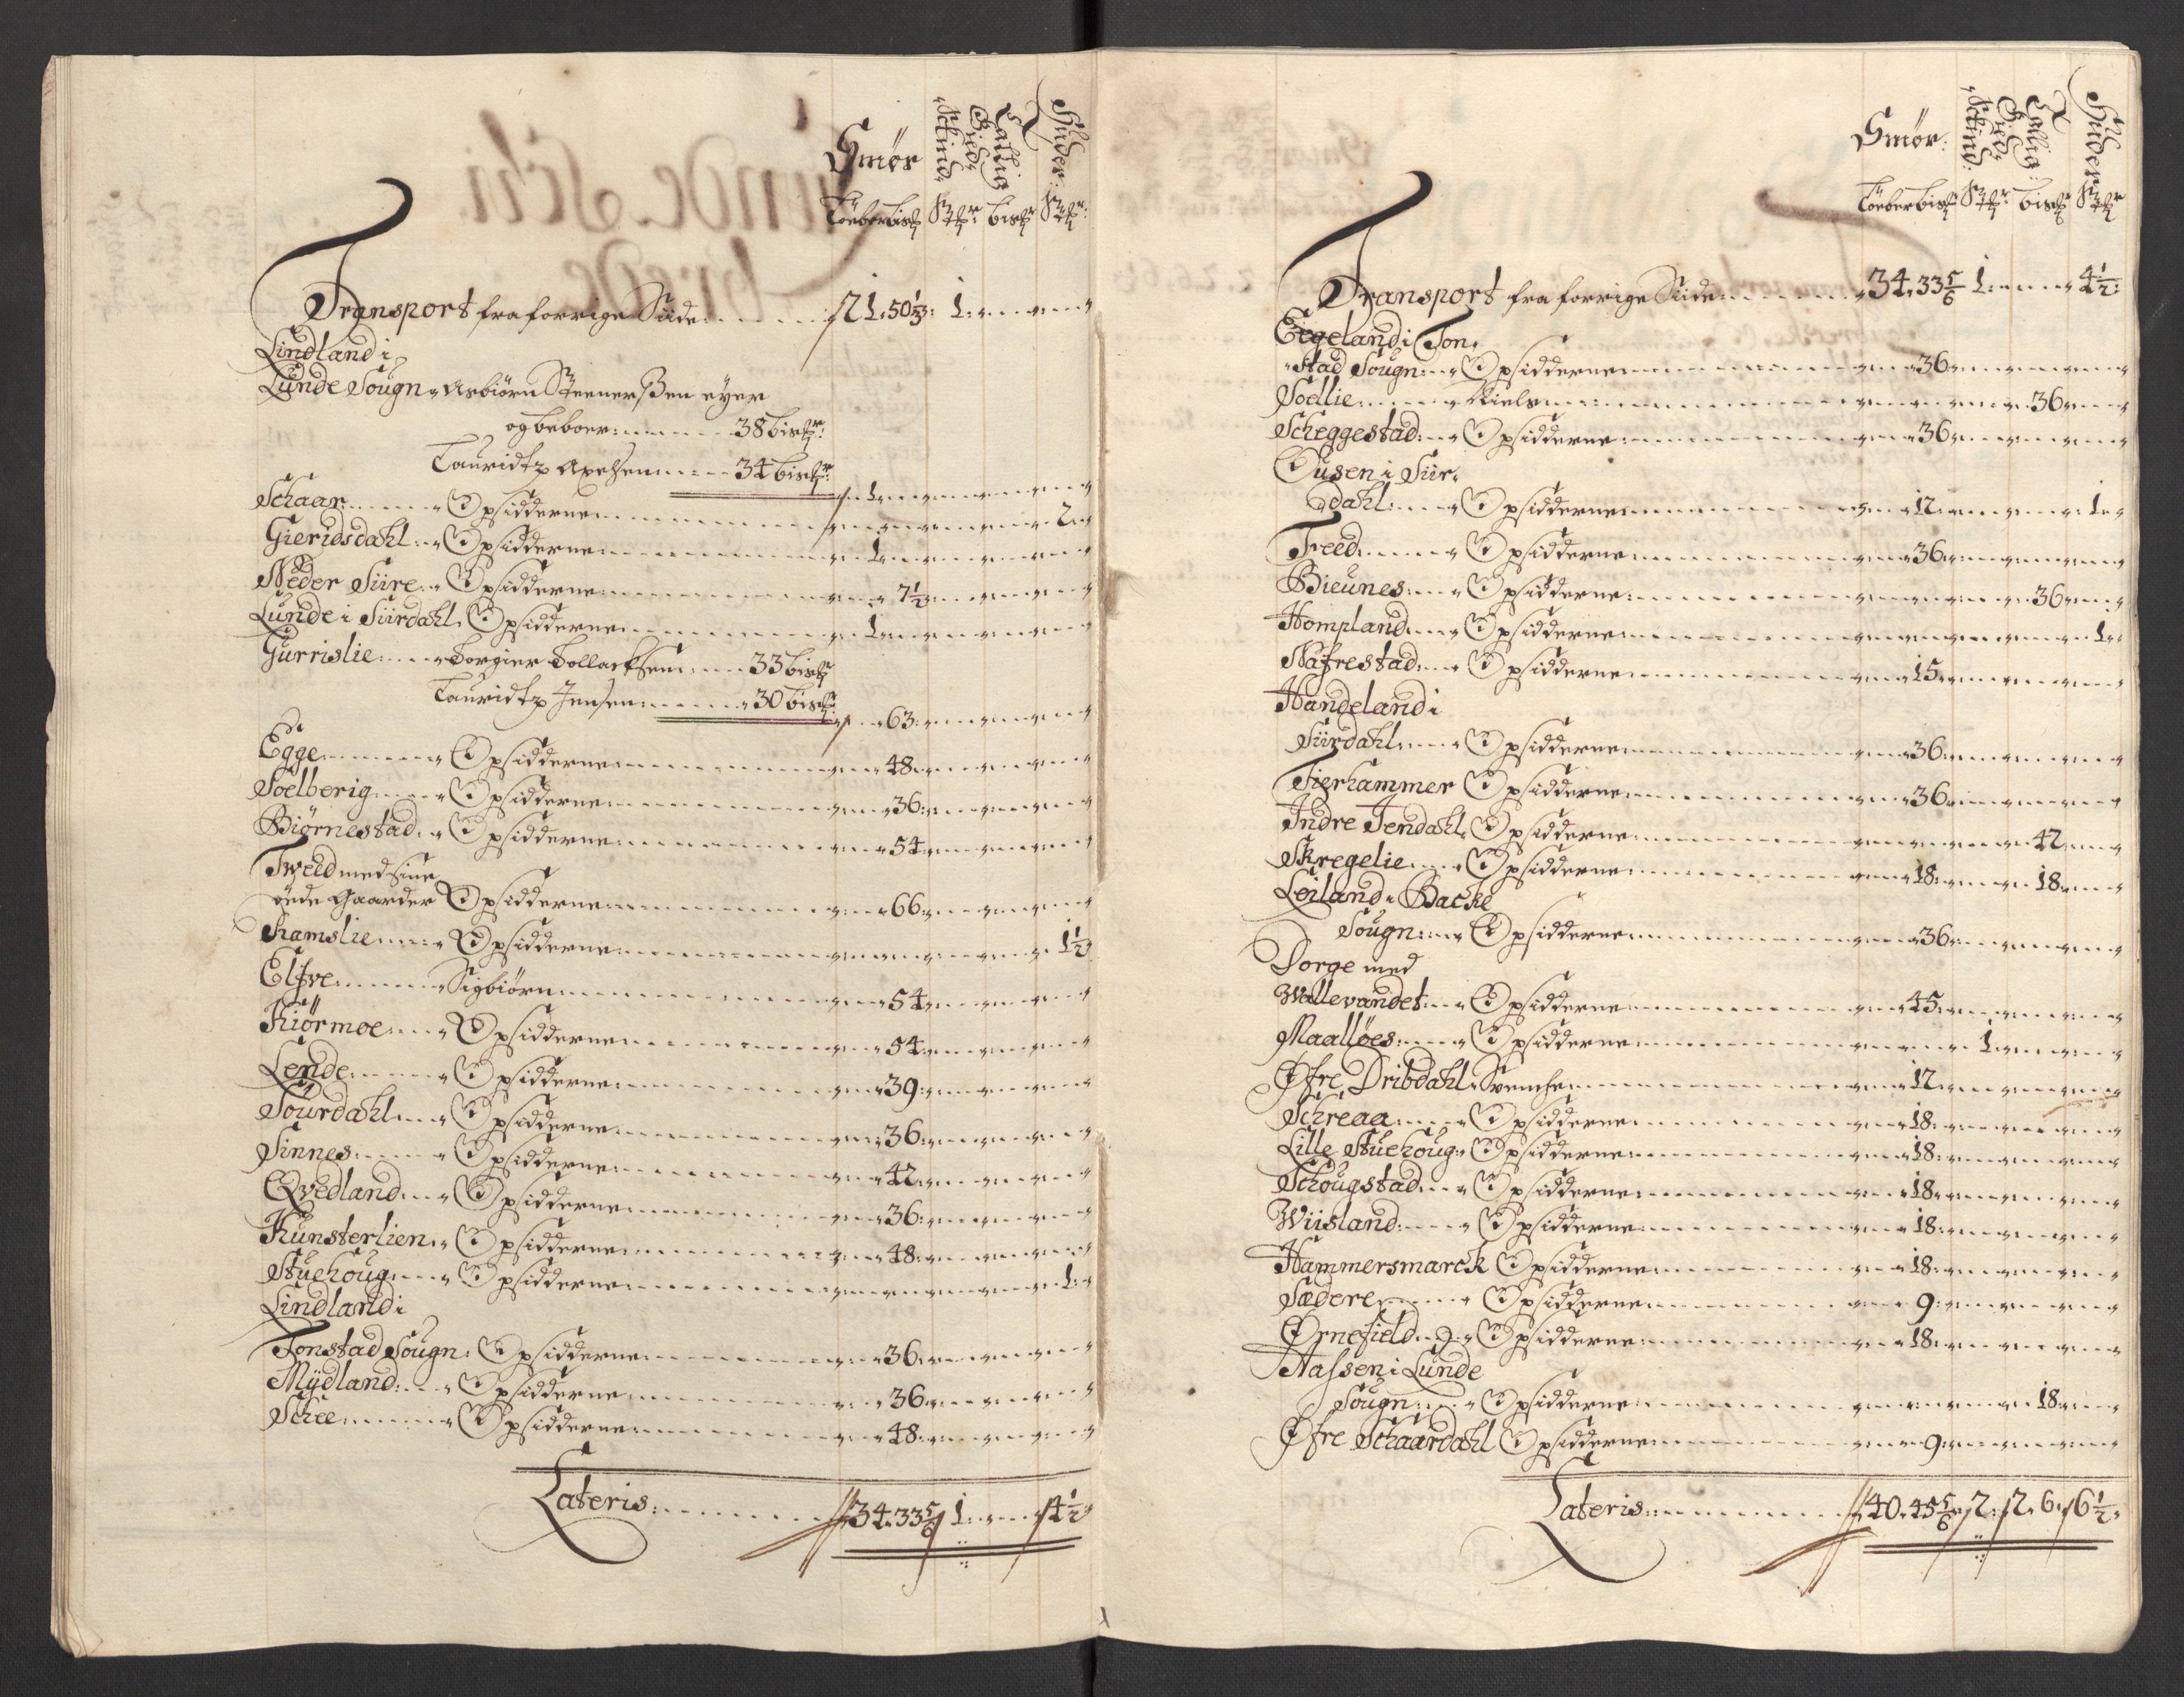 Smør
Giedskind
Tallig
Huder:
Løeber bismr St: bismr St:
Transport fra forrige Siide: 21. 50 1/3: 1:
Lindland i
Lunde Sougn Asbiørn Steenersßen eyer
og beboer: 38 bismr:
Lauridtz Axelsen 34 bismr: 1
Schaar Opsidderne 2
Gieridsdahl Opsidderne 1
Neder Siire Opsidderne 7 1/2
Lunde i Siirdahl Opsidderne 1
Gurrislie Torgier Tollacksen 33 bismr
Lauridtz Jensen 30 bismr 63
Egge Opsidderne 48
Soelberig Opsidderne 36
Biørnestad Opsidderne 54
Tweed med sine
øede Gaarder Opsidderne 66
Ramslie Opsidderne 1 1/2
Elfve Sigbiørn 54
Kiørmoe Opsidderne 54
Lende Opsidderne 39
Tourdahl Opsidderne 36
Sinnes Opsidderne 42
Qvedland Opsidderne 36
Kunsterlien Opsidderne 48
Stuehoug Opsidderne 1
Lindland i
Tonstad Sougn Opsidderne 36
Mÿdland Opsidderne 36
Schee Opsidderne 48
Lateris: 34. 33 5/6 1: 4 1/2
Smør:
Giedskind
Tallig:
Huder
Løeber bismr St: bismr St:
Transport fra forrige Siide 34. 33 5/6 1: 4 1/2:
Egeland i Ton-
stad Sougn Opsidderne 36
Soellie Niels 36
Scheggestad Opsidderne 36
Ousen i Siir-
dahl Opsidderne 12 1
Treed Opsidderne 36
Bieunes Opsidderne 36
Hompland Opsidderne 1
Nafrestad Opsidderne 15
Handeland i
Siirdahl Opsidderne 36
Fierhammer Opsidderne 36
Indre Tendahl Opsidderne 42
Skregelie Opsidderne 18 18
Leiland i Backe
Sougn Opsidderne 36
Dorge med
Wallevandet Opsidderne 45
Maalløes Opsidderne 1
Øfre Dribdahl Svenche 12
Schreaa Opsidderne 18
Lille Stuehoug Opsidderne 18
Schougstad Opsidderne 18
Wiisland Opsidderne 18
Hammersmarck Opsidderne 18
Sædere Opsidderne 9
Ørnefield Opsidderne 18
Aassen i Lunde
Sougn Opsidderne 18
Øfre Schaardahl Opsidderne 9
Lateris: 40. 45 5/6 2. 2. 6. 6 1/2